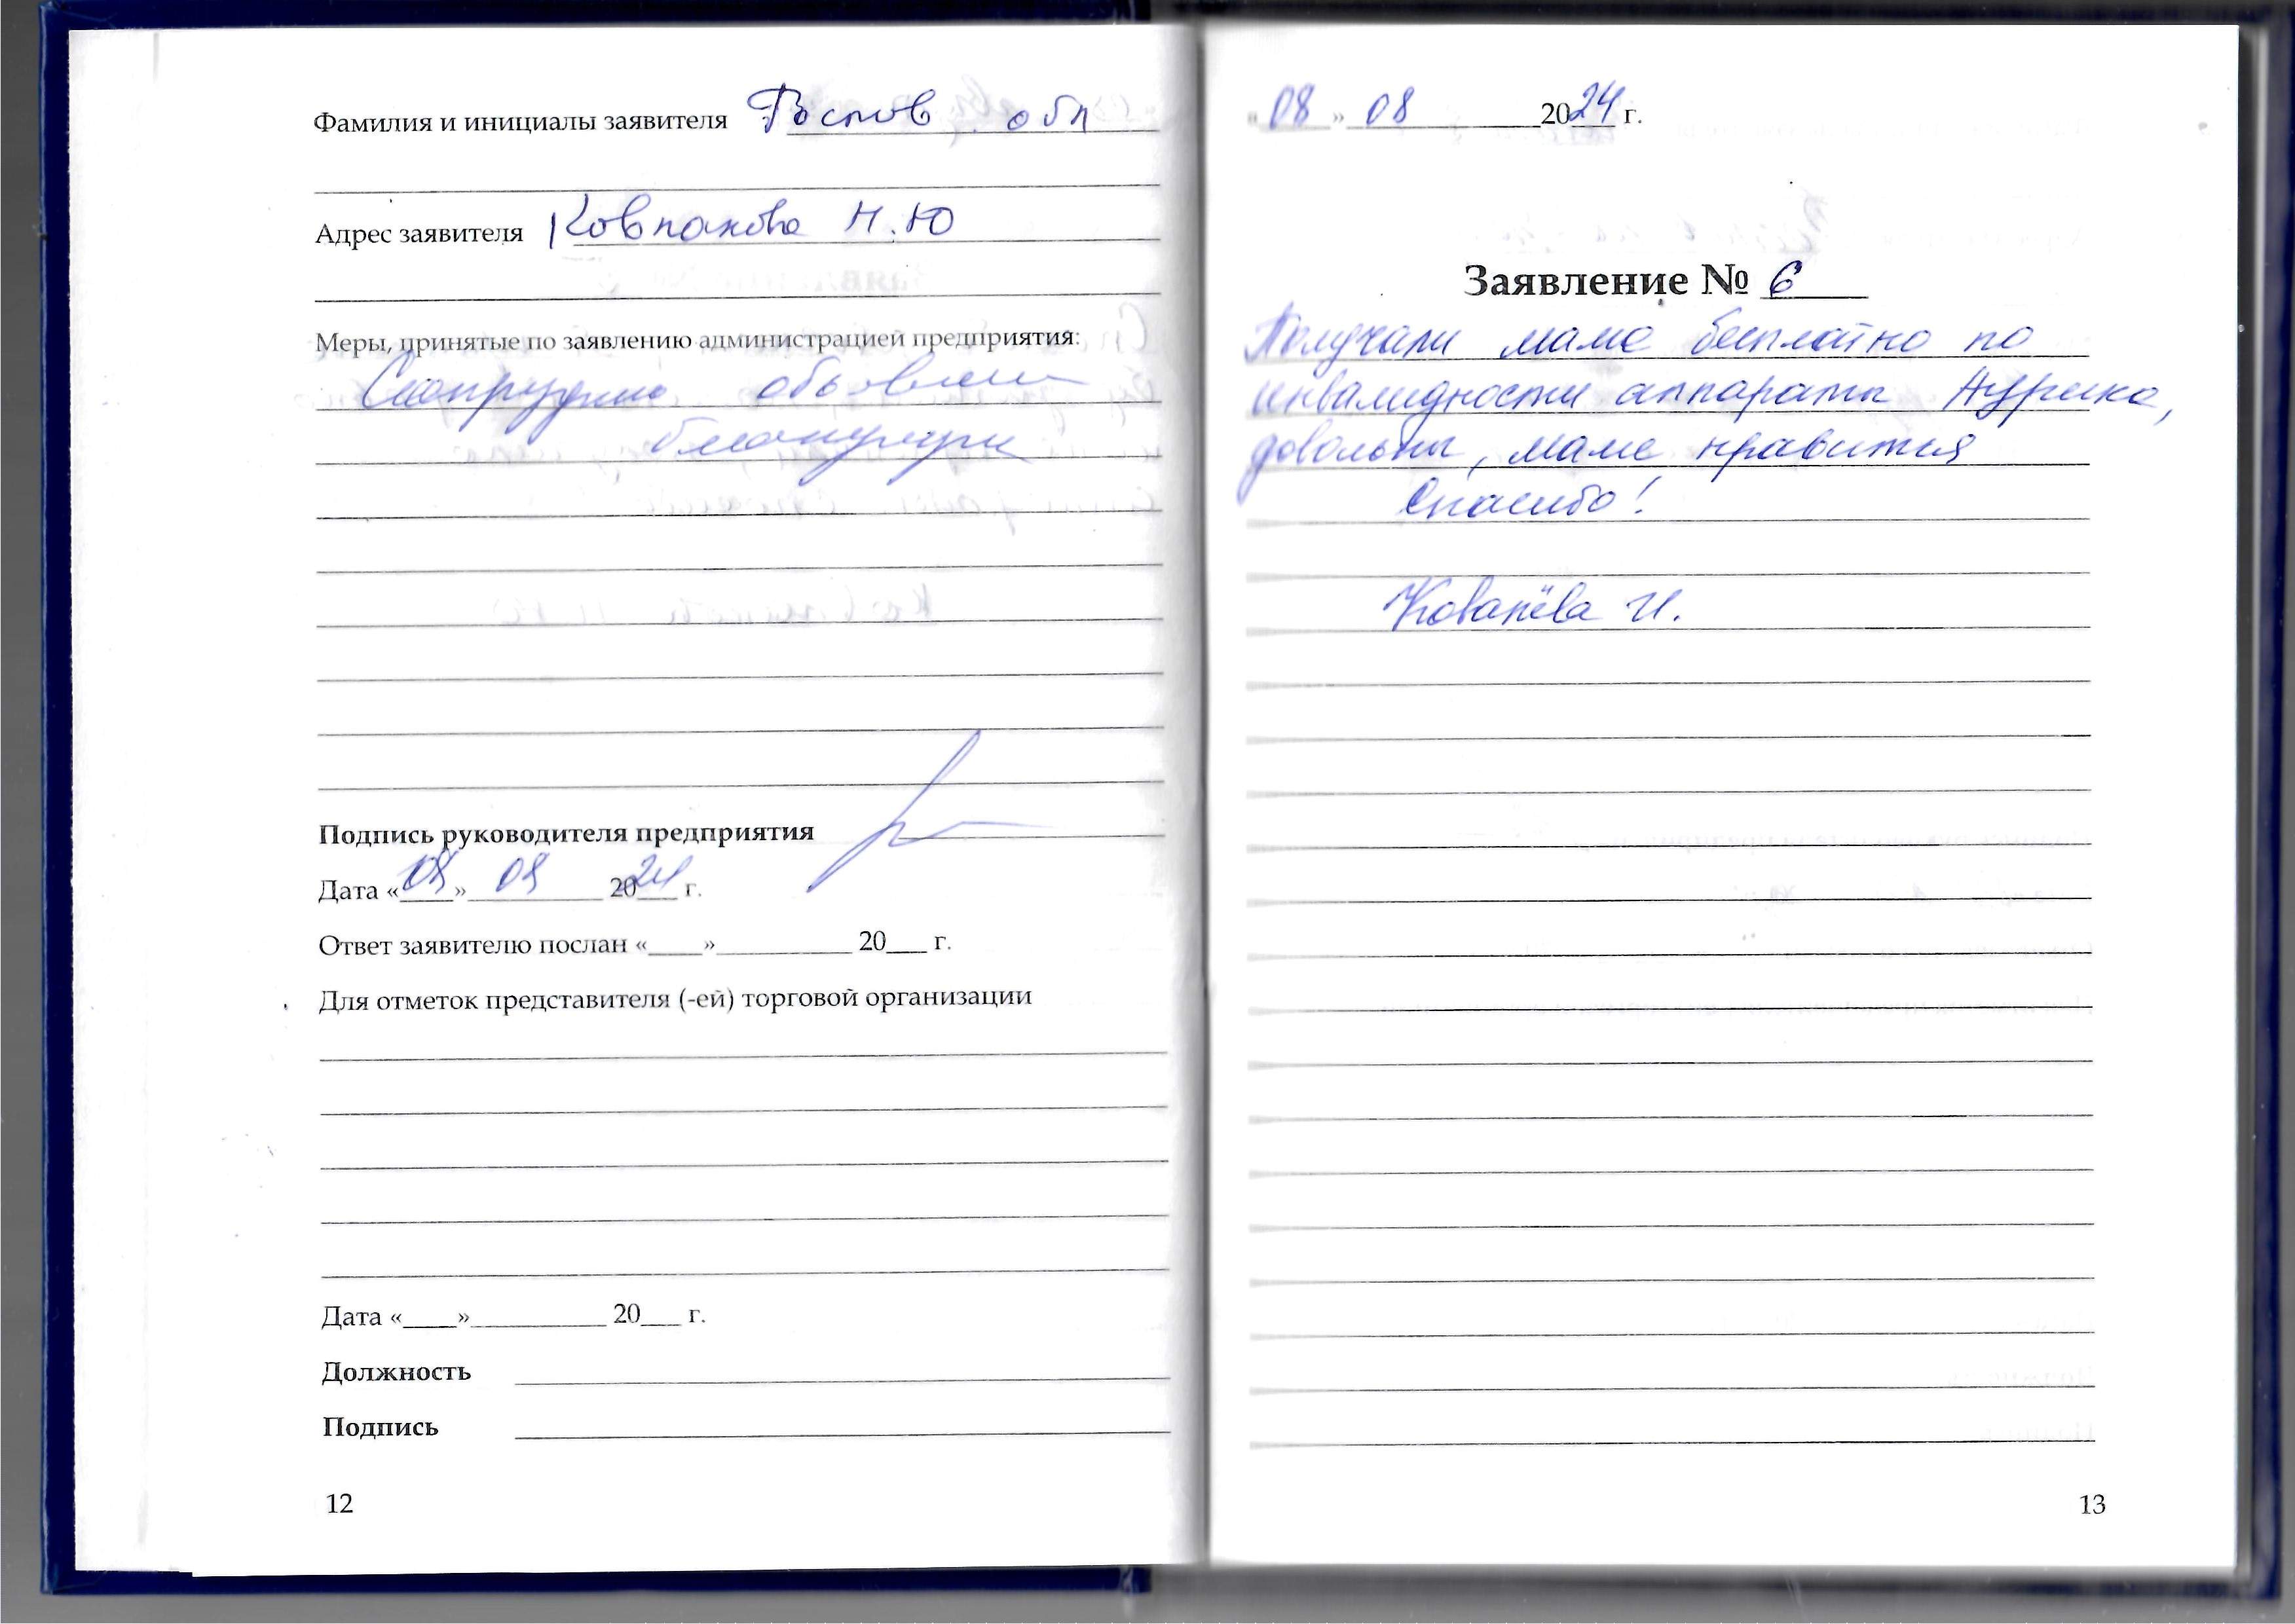 Фамилия и инициалы заявителя Ростов. обл
Адрес заявителя Ковпакова Н.Ю
Меры, принятые по заявлению администрацией предприятия:
объявлена
благодарность
Подпись руководителя предприятия
Дата «08» 08 2024 г.
Ответ заявителю послан «____»__________ 20___ г.
Для отметок представителя (-ей) торговой организации
Дата «____»__________ 20___ г.
Должность
Подпись
12
«08» 08 2024 г.
Заявление № 6
Получали маме бесплатно по
инвалидности аппараты Аурика,
довольны, маме нравится
Спасибо!
Ковалёва И.
13